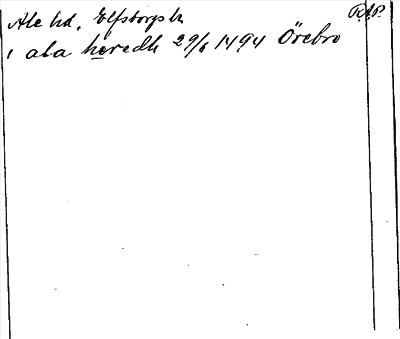 Ale hd, Elfsborgs l. R.A.P.
i ala heredh 29/6 1494 Örebro